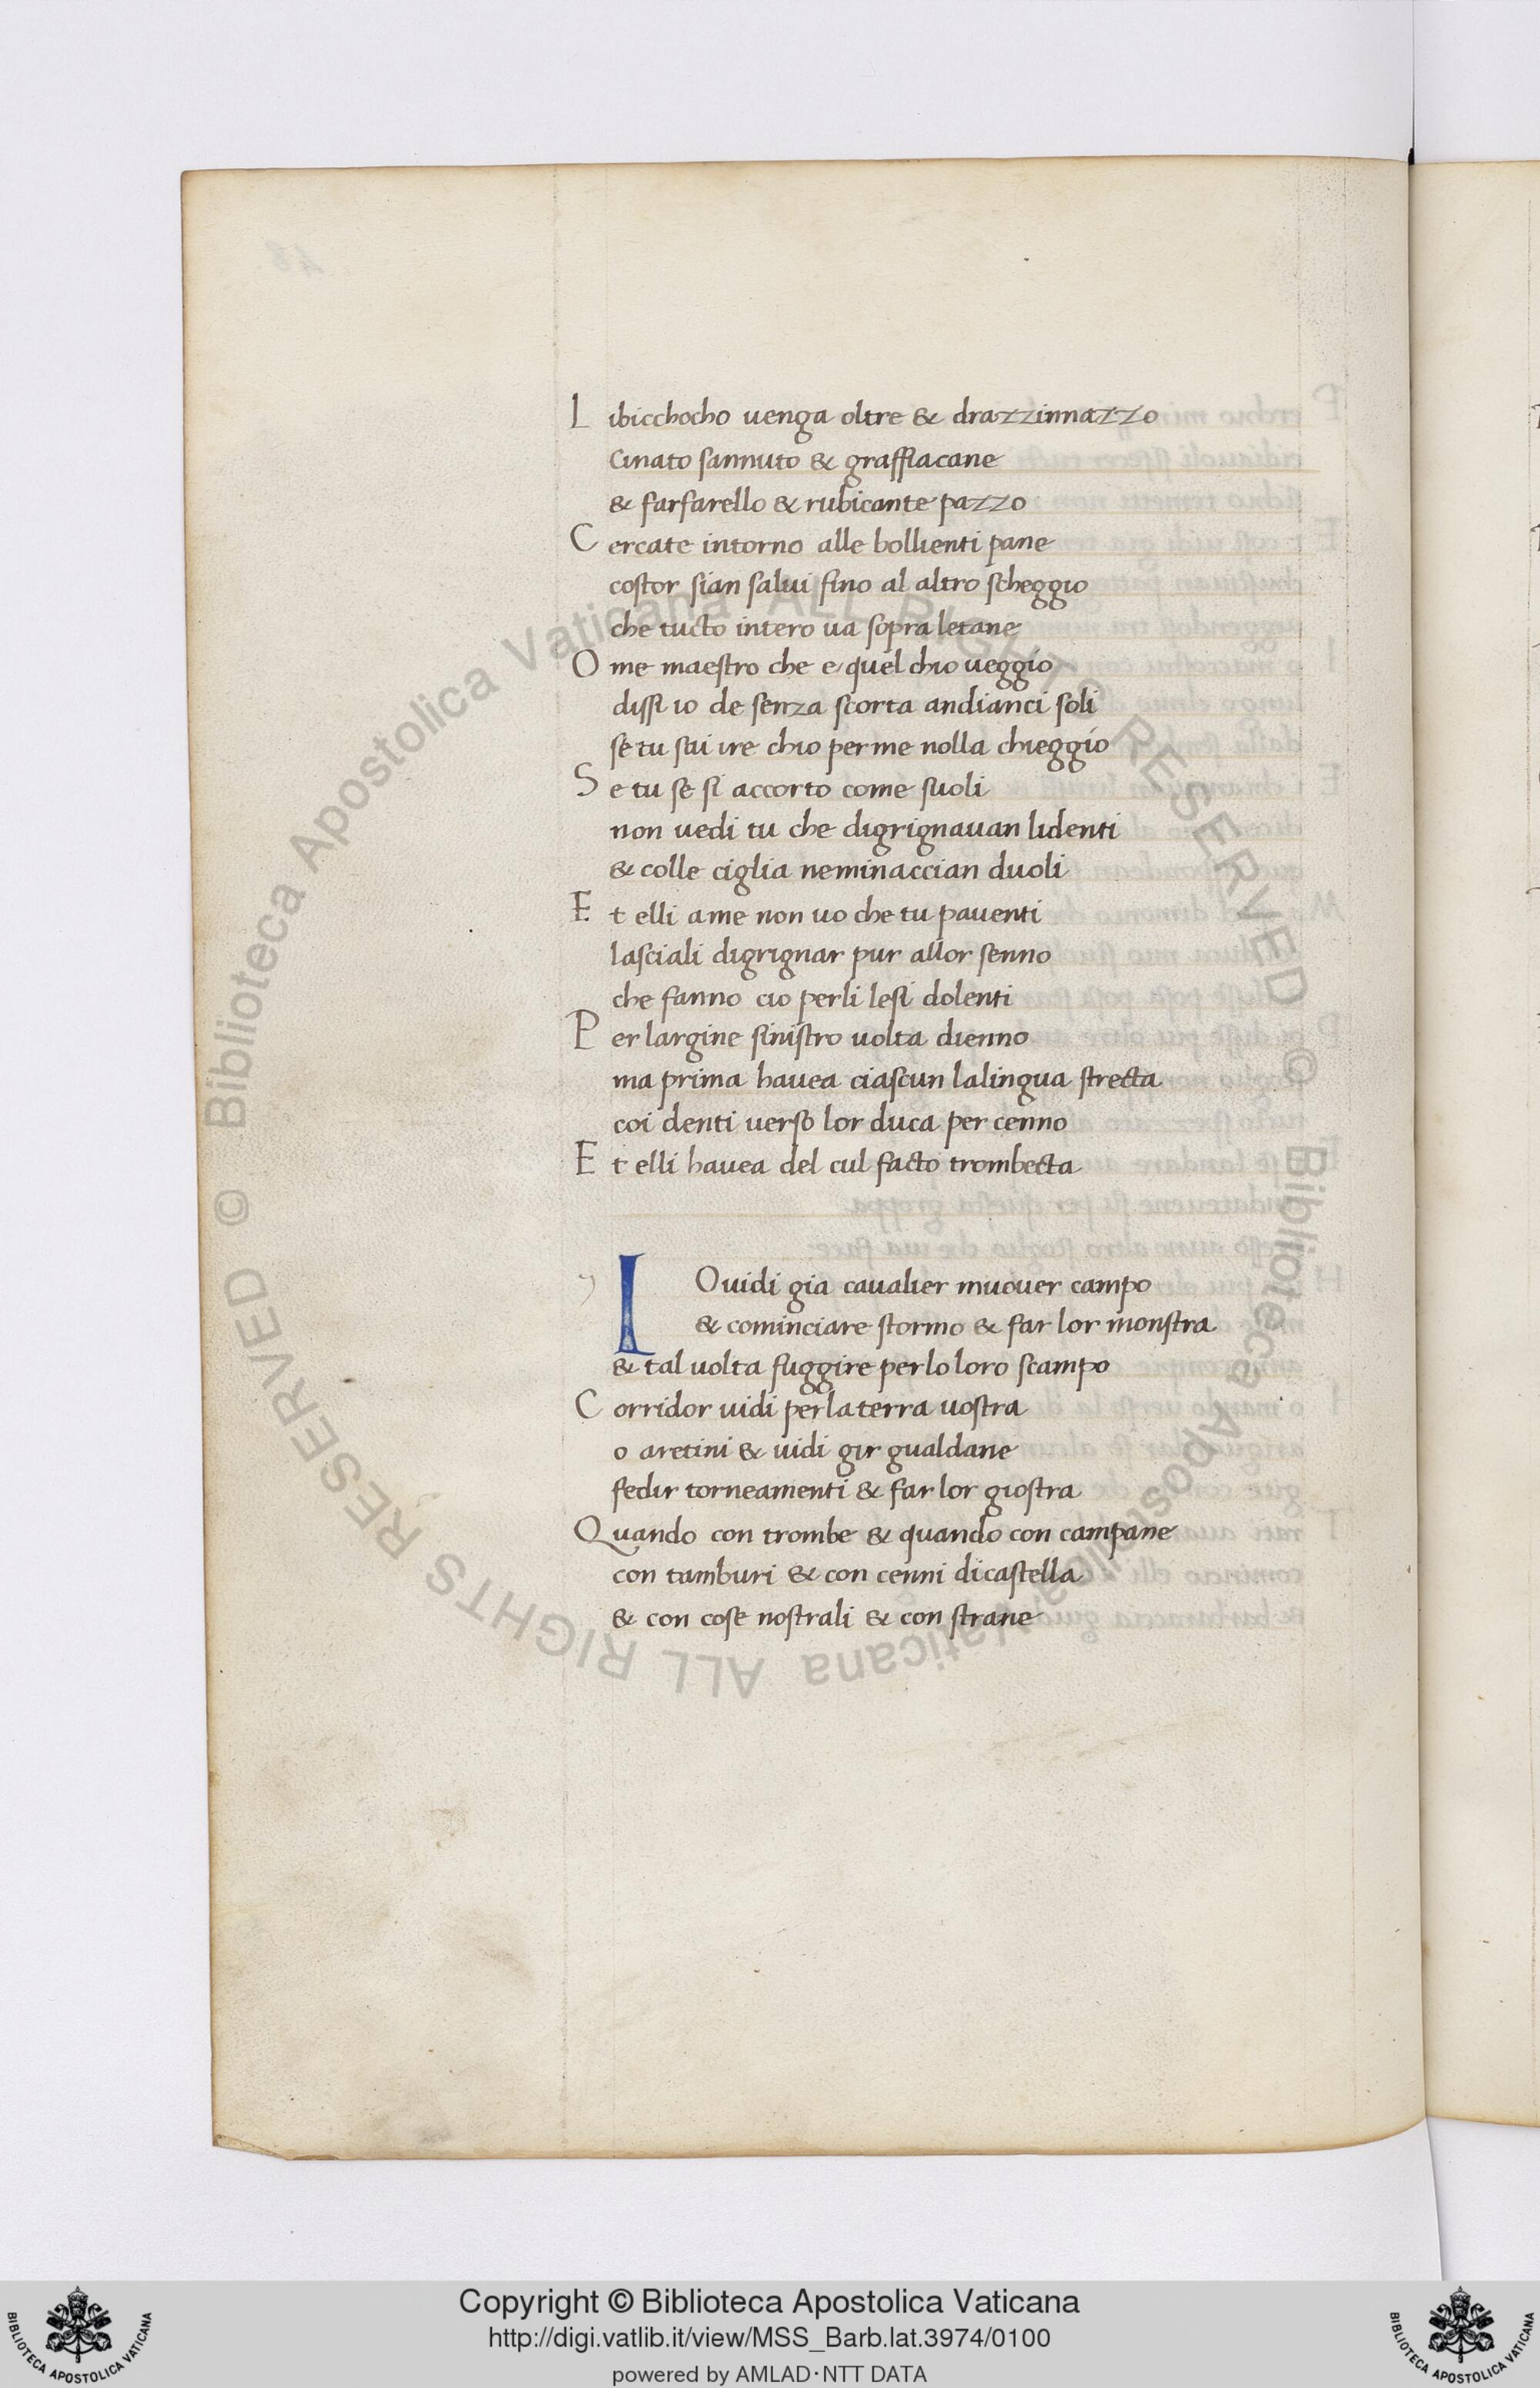 Libicchocho uenga oltre & drazzinnazzo
Ciriato sannuto & graffiacane
& farfarello & rubicante pazzo
Cercate intorno alle bollienti pane
costor sian salui fino al altro scheggio
che tucto intero ua sopra letane
Ome maestro che e quel chio ueggio
dissi io de senza scorta andianci soli
se tu sai ire chio per me nolla chieggio
Se tu se si accorto come suoli
non uedi tu che digrignauan lidenti
& colle ciglia neminaccian duoli
Et elli ame non uo che tu pauenti
lasciali digrignar pur allor senno
che fanno cio perli lesi dolenti
Per largine sinistro uolta dienno
ma prima hauea ciascun lalingua strecta
coi denti uerso lor duca per cenno
Et elli hauea del cul facto trombecta
IO uidi gia caualier muouer campo
& cominciare stormo & far lor monstra
& tal uolta fuggire perlo loro scampo
Corridor uidi perla terra uostra
o aretini & uidi gir gualdane
fedir torneamenti & far lor giostra
Quando con trombe & quando con campane
con tamburi & con cenni dicastella
& con cose nostrali & con strane
© Biblioteca Apostolica Vaticana ALL RIGHTS RESERVED © Biblioteca Apostolica Vaticana ALL RIGHTS RESERVED
Copyright © Biblioteca Apostolica Vaticana
http://digi.vatlib.it/view/MSS_Barb.lat.3974/0100
powered by AMLAD·NTT DATA
BIBLIOTECA APOSTOLICA VATICANA
BIBLIOTECA APOSTOLICA VATICANA